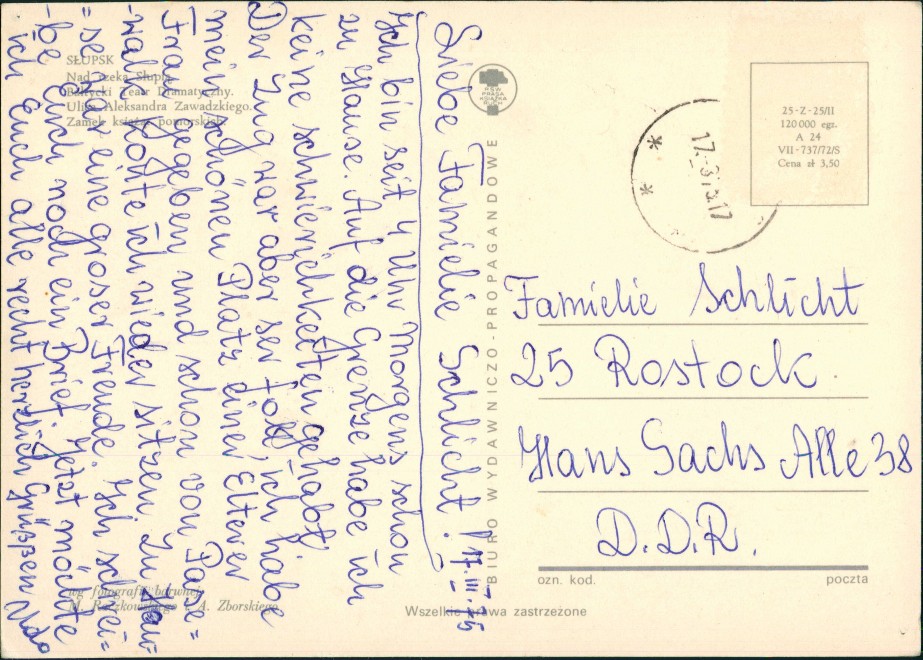 SŁUPSK
Nad rzeką Słupią.
Bałtycki Teatr Dramatyczny.
Ulica Aleksandra Zawadzkiego.
Zamek książąt pomorskich.
Liebe Famielie Schlicht! 17.III.75
Ich bin seit 4 Uhr Morgens schon
zu Hause. Auf die Grenze habe ich
keine schwierichkeiten gehabt.
Der Zug war aber ser foll ich habe
mein schönen Platz einer Elterer
Frau gegeben und schon von Pase=
-walk konte ich wieder sitzen. Zu Hau-
=se war eine groser Freude. Ich schrei=
-be Euch noch ein Brief. Jetzt möchte
ich Euch alle recht herzlich Grüßzen Udo
wg fotografii barwnej
M. Raczkowskiego i A. Zborskiego
RSW
PRASA
KSIĄŻKA
RUCH
BIURO WYDAWNICZO-PROPAGANDOWE
25-Z-25/II
120 000 egz.
A 24
VII-737/72/S
Cena zł 3,50
Famielie Schlicht
25 Rostock.
Hans Sachs Alle 38
D.D.R.
ozn. kod. poczta
Wszelkie prawa zastrzeżone